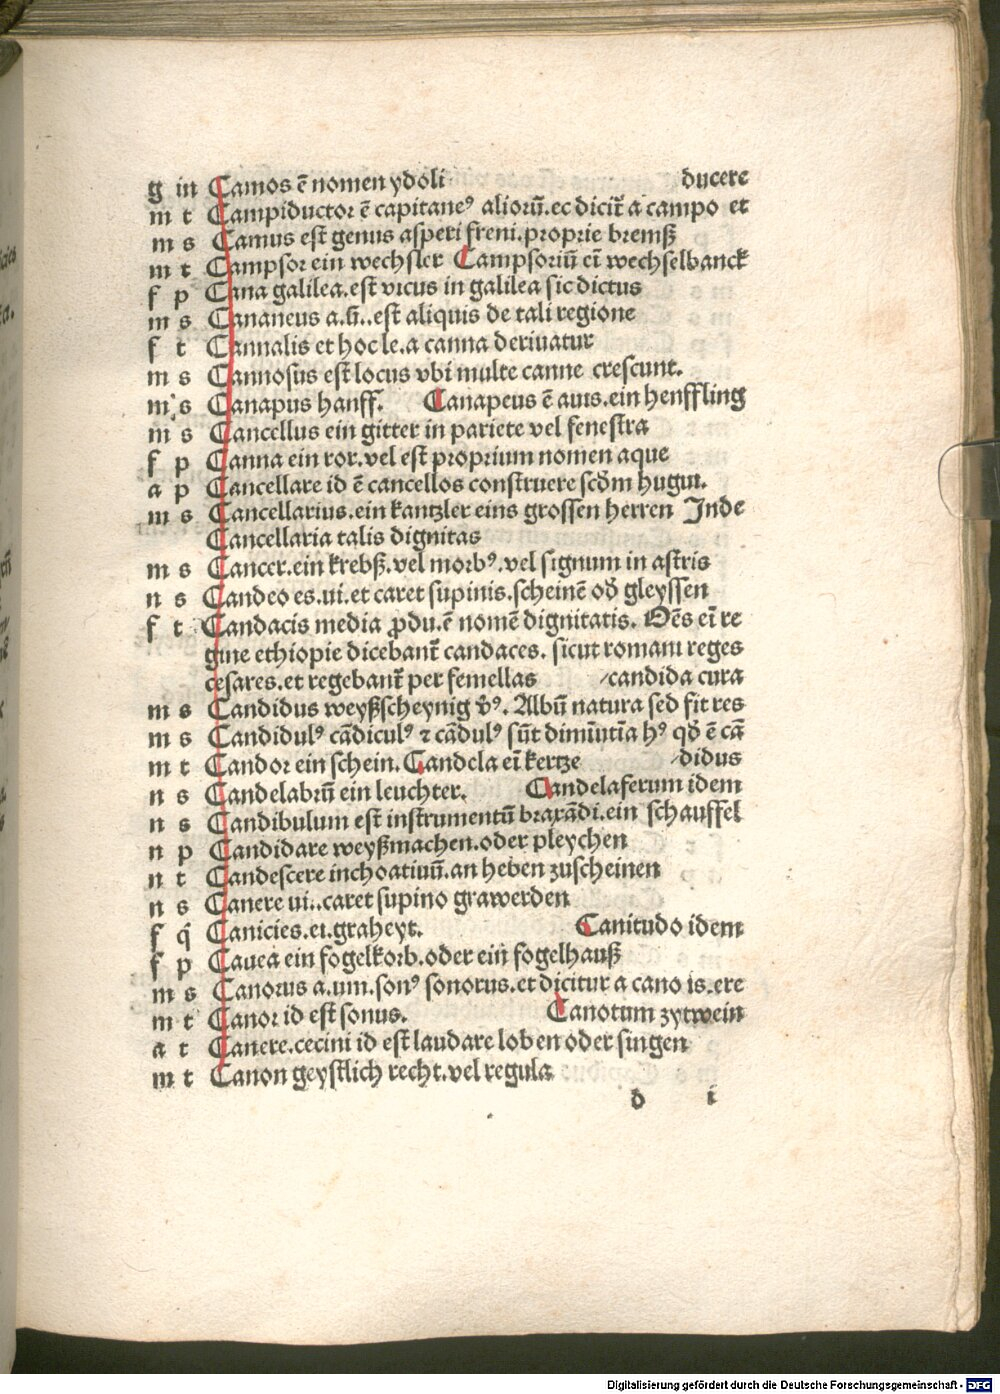 g in Camos ē nomen ydoli ducere
m t Campiductor ē capitaneꝰ alioꝝ̄.ec dicit̄ a campo et
m s Camus est genus asperi freni.proprie bremß
m t Campsor ein wechsler Campsoriū eī wechselbanck
f p Cana galilea.est vicus in galilea sic dictus
m s Cananeus a.ū..est aliquis de tali regione
f t Cannalis et hoc le.a canna deriuatur
m s Cannosus est locus vbi multe canne crescunt.
m s Canapus hanff. Canapeus ē auis.ein henffling
m s Cancellus ein gitter in pariete vel fenestra
f p Canna ein ror.vel est proprium nomen aque
a p Cancellare id ē cancellos construere scd̄m hugut.
m s Cancellarius.ein kantzler eins grossen herren Inde
Cancellaria talis dignitas
m s Cancer.ein krebß.vel morbꝰ.vel signum in astris
n s Candeo es.ui.et caret supinis.scheinē od̄ gleyssen
f t Candacis media ꝓdu.ē nomē dignitatis. Oēs eī re
gine ethiopie dicebant̄ candaces. sicut romani reges
cesares.et regebant̄ per femellas /candida cura
m s Candidus weyßscheynig v̄ꝰ. Albū natura sed fit res
m s Candidulꝰ cādiculꝰ ⁊ cādulꝰ sūt diminūtīa hꝰ qd̄ ē cā
m t Candor ein schein. Candela eī kertze /didus
n s Candelabrū ein leuchter. Candelaferum idem
n s Candibulum est instrumentū braxādi.ein schauffel
n p Candidare weyßmachen.oder pleychen
n t Candescere inchoatiuū.an heben zuscheinen
n s Canere ui..caret supino grawerden
f q̄ Canicies.ei.graheyt. Canitudo idem
f p Cauea ein fogelkorb.oder ein fogelhauß
m s Canorus a.um.sonꝰ sonorus.et dicitur a cano is.ere
m t Canor id est sonus. Canotum zytwein
a t Canere.cecini id est laudare loben oder singen
m t Canon geystlich recht.vel regula
d i
Digitalisierung gefördert durch die Deutsche Forschungsgemeinschaft - DFG